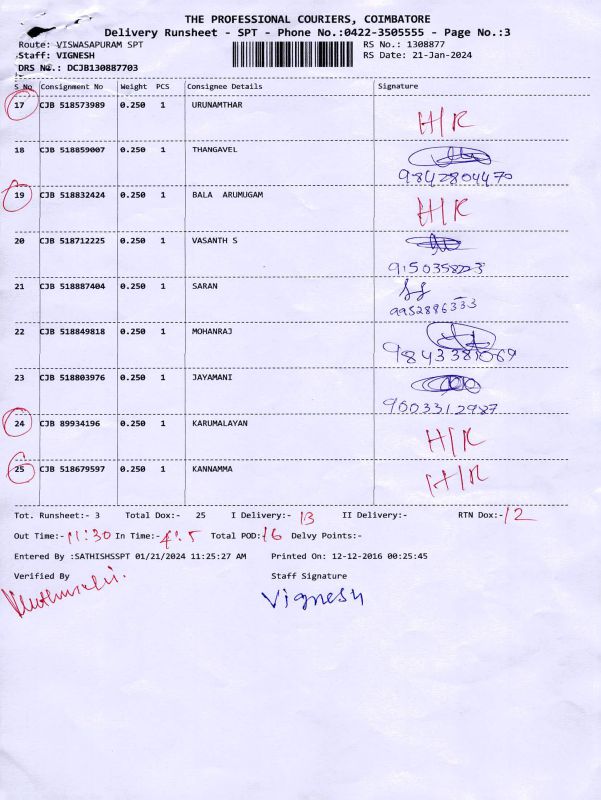 THE PROFESSIONAL COURIERS, COIMBATORE
Delivery Runsheet - SPT - Phone No.:0422-3505555 - Page No.:3
Route: VISWASAPURAM SPT RS No.: 1308877
Staff: VIGNESH RS Date: 21-Jan-2024
DRS No.: DCJB130887703
S No Consignment No Weight PCS Consignee Details Signature
17 CJB 518573989 0.250 1 URUNAMTHAR H/R
18 CJB 518859007 0.250 1 THANGAVEL
9842804470
19 CJB 518832424 0.250 1 BALA ARUMUGAM H/R
20 CJB 518712225 0.250 1 VASANTH S
21 CJB 518887404 0.250 1 SARAN
9952886333
22 CJB 518849818 0.250 1 MOHANRAJ
9843381069
23 CJB 518803976 0.250 1 JAYAMANI
9003312987
24 CJB 89934196 0.250 1 KARUMALAYAN H/R
25 CJB 518679597 0.250 1 KANNAMMA H/R
Tot. Runsheet:- 3 Total Dox:- 25 I Delivery:- 13 II Delivery:- RTN Dox:- 12
Out Time:- 11:30 In Time:- Total POD: 16 Delvy Points:-
Entered By :SATHISHSSPT 01/21/2024 11:25:27 AM Printed On: 12-12-2016 00:25:45
Verified By Staff Signature
Vignesh